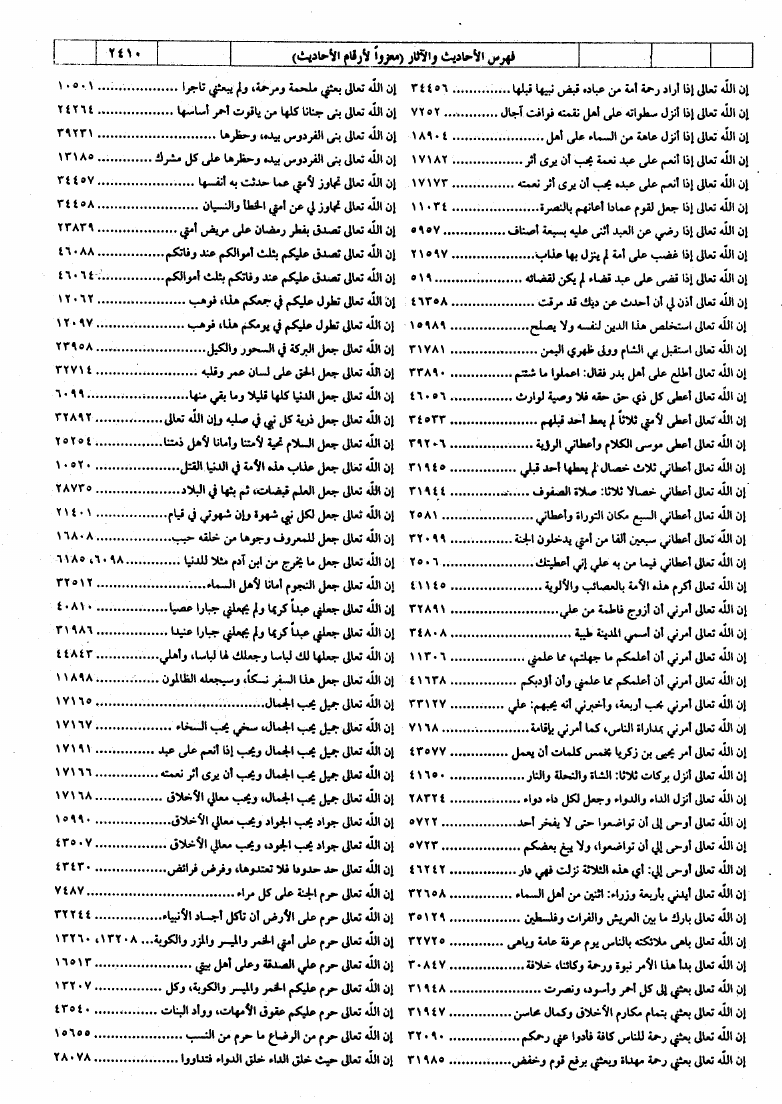 فهرس الأحاديث والآثار (معزواً لأرقام الأحاديث)
٢٤١٠
إن الله تعالى إذا أراد رحمة أمة من عباده قبض نبيها قبلها ............ ٣٤٤٥٦
إن الله تعالى إذا أنزل سطواته على أهل نقمته فوافت آجال ............ ٧٢٥٢
إن الله تعالى إذا أنزل عاهة من السماء على أهل ............ ١٨٩٠٤
إن الله تعالى إذا أنعم على عبد نعمة يحب أن يرى أثر ............ ١٧١٨٢
إن الله تعالى إذا أنعم على عبده يحب أن يرى أثر نعمته ............ ١٧١٧٣
إن الله تعالى إذا جعل لقوم عمادا أعانهم بالنصرة ............ ١١٠٣٤
إن الله تعالى إذا رضي عن العبد أثنى عليه بسبعة أصناف ............ ٥٩٥٧
إن الله تعالى إذا غضب على أمة لم ينزل بها عذاب ............ ٢١٥٩٧
إن الله تعالى إذا قضى على عبد قضاء لم يكن لقضائه ............ ٥١٩
إن الله تعالى أذن لي أن أحدث عن ديك قد مرقت ............ ٤٦٣٥٨
إن الله تعالى استخلص هذا الدين لنفسه ولا يصلح ............ ١٥٩٨٩
إن الله تعالى استقبل بي الشام وولى ظهري اليمن ............ ٣١٧٨١
إن الله تعالى أطلع على أهل بدر فقال: اعملوا ما شئتم ............ ٣٣٨٩٠
إن الله تعالى أعطى كل ذي حق حقه فلا وصية لوارث ............ ٤٦٠٥٦
إن الله تعالى أعطى لأمتي ثلاثاً لم يعط أحد قبلهم ............ ٣٤٥٣٣
إن الله تعالى أعطى موسى الكلام وأعطاني الرؤية ............ ٣٩٢٠٦
إن الله تعالى أعطاني ثلاث خصال لم يعطها أحد قبلي ............ ٣١٩٤٥
إن الله تعالى أعطاني خصالا ثلاثا: صلاة الصفوف ............ ٣١٩٤٤
إن الله تعالى أعطاني السبع مكان التوراة وأعطاني ............ ٢٥٨١
إن الله تعالى أعطاني سبعين ألفا من أمتي يدخلون الجنة ............ ٣٢٠٩٩
إن الله تعالى أعطاني فيما من به علي إني أعطيتك ............ ٢٥٠٦
إن الله تعالى أكرم هذه الأمة بالعصائب والألوية ............ ٤١١٤٥
إن الله تعالى أمرني أن أزوج فاطمة من علي ............ ٣٢٨٩١
إن الله تعالى أمرني أن أسمي المدينة طيبة ............ ٣٤٨٠٨
إن الله تعالى أمرني أن أعلمكم ما جهلتم، مما علمني ............ ١١٣٠٦
إن الله تعالى أمرني أن أعلمكم مما علمني وأن أؤدبكم ............ ٤١٦٣٨
إن الله تعالى أمرني بحب أربعة، وأخبرني أنه يحبهم: علي ............ ٣٣١٢٧
إن الله تعالى أمرني بمداراة الناس، كما أمرني بإقامة ............ ٧١٦٨
إن الله تعالى أمر يحيى بن زكريا بخمس كلمات أن يعمل ............ ٤٣٥٧٧
إن الله تعالى أنزل بركات ثلاثا: الشاة والنحلة والنار ............ ٤١٦٥٠
إن الله تعالى أنزل الداء والدواء وجعل لكل داء دواء ............ ٢٨٣٢٤
إن الله تعالى أوحى إلى أن تواضعوا حتى لا يفخر أحد ............ ٥٧٢٢
إن الله تعالى أوحى إلي أن تواضعوا، ولا يبغ بعضكم ............ ٥٧٢٣
إن الله تعالى أوحى إلي: أي هذه الثلاثة نزلت فهي دار ............ ٤٦٢٤٢
إن الله تعالى أيدني بأربعة وزراء: اثنين من أهل السماء ............ ٣٢٦٥٨
إن الله تعالى بارك ما بين العريش والفرات وفلسطين ............ ٣٥١٢٩
إن الله تعالى باهى ملائكته بالناس يوم عرفة عامة وباهى ............ ٣٢٧٢٥
إن الله تعالى بدأ هذا الأمر نبوة ورحمة وكائنا، خلافة ............ ٣٠٨٤٧
إن الله تعالى بعثني إلى كل أحمر وأسود، ونصرت ............ ٣١٩٤٨
إن الله تعالى بعثني بتمام مكارم الأخلاق وكمال محاسن ............ ٣١٩٤٧
إن الله تعالى بعثني رحمة للناس كافة فأدوا عني رحمكم ............ ٣٢٠٩٠
إن الله تعالى بعثني رحمة مهداة وبعثني برفع قوم وخفض ............ ٣١٩٨٥
إن الله تعالى بعثني ملحمة ومرحمة، ولم يبعثني تاجرا ............ ١٠٥٠١
إن الله تعالى بنى جنانا كلها من ياقوت أحمر أساسها ............ ٢٤٢٦٤
إن الله تعالى بنى الفردوس بيده، وحظرها ............ ٣٩٢٣١
إن الله تعالى بنى الفردوس بيده وحظرها على كل مشرك ............ ١٣١٨٥
إن الله تعالى تجاوز لأمتي عما حدثت به أنفسها ............ ٣٤٤٥٧
إن الله تعالى تجاوز لي عن أمتي الخطأ والنسيان ............ ٣٤٤٥٨
إن الله تعالى تصدق بفطر رمضان على مريض أمتي ............ ٢٣٨٣٩
إن الله تعالى تصدق عليكم بثلث أموالكم عند وفاتكم ............ ٤٦٠٨٨
إن الله تعالى تصدق عليكم عند وفاتكم بثلث أموالكم ............ ٤٦٠٦٤
إن الله تعالى تطول عليكم في جمعكم هذا، فوهب ............ ١٢٠٦٢
إن الله تعالى تطول عليكم في يومكم هذا، فوهب ............ ١٢٠٩٧
إن الله تعالى جعل البركة في السحور والكيل ............ ٢٣٩٥٨
إن الله تعالى جعل الحق على لسان عمر وقلبه ............ ٣٢٧١٤
إن الله تعالى جعل الدنيا كلها قليلا وما بقي منها ............ ٦٠٩٩
إن الله تعالى جعل ذرية كل نبي في صلبه وإن الله تعالى ............ ٣٢٨٩٢
إن الله تعالى جعل السلام تحية لأمتنا وأمانا لأهل ذمتنا ............ ٢٥٢٥٤
إن الله تعالى جعل عذاب هذه الأمة في الدنيا القتل ............ ١٠٥٢٠
إن الله تعالى جعل العلم قبضات، ثم بثها في البلاد ............ ٢٨٧٣٥
إن الله تعالى جعل لكل نبي شهوة وإن شهوتي في قيام ............ ٢١٤٠١
إن الله تعالى جعل للمعروف وجوها من خلقه حبب ............ ١٦٨٠٨
إن الله تعالى جعل ما يخرج من ابن آدم مثلا للدنيا ............ ٦٠٩٨، ٦١٨٥
إن الله تعالى جعل النجوم أمانا لأهل السماء ............ ٣٢٥١٢
إن الله تعالى جعلني عبداً كريما ولم يجعلني جبارا عصيا ............ ٤٠٨١٠
إن الله تعالى جعلني عبداً كريما ولم يجعلني جبارا عنيدا ............ ٣١٩٨٦
إن الله تعالى جعلها لك لباسا وجعلك لها لباسا، وأهلي ............ ٤٤٨٤٣
إن الله تعالى جعل هذا السفر نسكاً، وسيجعله الظالمون ............ ١١٨٩٨
إن الله تعالى جميل يحب الجمال ............ ١٧١٦٥
إن الله تعالى جميل يحب الجمال، سخي يحب السخاء ............ ١٧١٦٧
إن الله تعالى جميل يحب الجمال ويحب إذا أنعم على عبد ............ ١٧١٩١
إن الله تعالى جميل يحب الجمال ويحب أن يرى أثر نعمته ............ ١٧١٦٦
إن الله تعالى جميل يحب الجمال، ويحب معالي الأخلاق ............ ١٧١٦٨
إن الله تعالى جواد يحب الجواد ويحب معالي الأخلاق ............ ١٥٩٩٠
إن الله تعالى جواد يحب الجود، ويحب معالي الأخلاق ............ ٤٣٥٠٧
إن الله تعالى حد حدودا فلا تعتدوها، وفرض فرائض ............ ٤٣٤٣٠
إن الله تعالى حرم الجنة على كل مراء ............ ٧٤٨٧
إن الله تعالى حرم على الأرض أن تأكل أجساد الأنبياء ............ ٣٢٢٤٤
إن الله تعالى حرم على أمتي الخمر والميسر والمزر والكوبة... ١٣٢٠٨، ١٣٢٦٠
إن الله تعالى حرم علي الصدقة وعلى أهل بيتي ............ ١٦٥١٣
إن الله تعالى حرم عليكم الخمر والميسر والكوبة، وكل ............ ١٣٢٠٧
إن الله تعالى حرم عليكم عقوق الأمهات، ووأد البنات ............ ٤٣٥٤٠
إن الله تعالى حرم من الرضاع ما حرم من النسب ............ ١٥٦٥٥
إن الله تعالى حيث خلق الداء خلق الدواء فتداووا ............ ٢٨٠٧٨